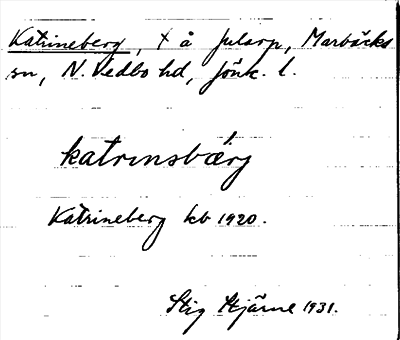 Katrineberg, × å Jularp, Marbäcks
sn, N. Vedbo hd, Jönk. l.
katrinsbærg
Katrineberg kb 1920.
Stig Stjärne 1931.